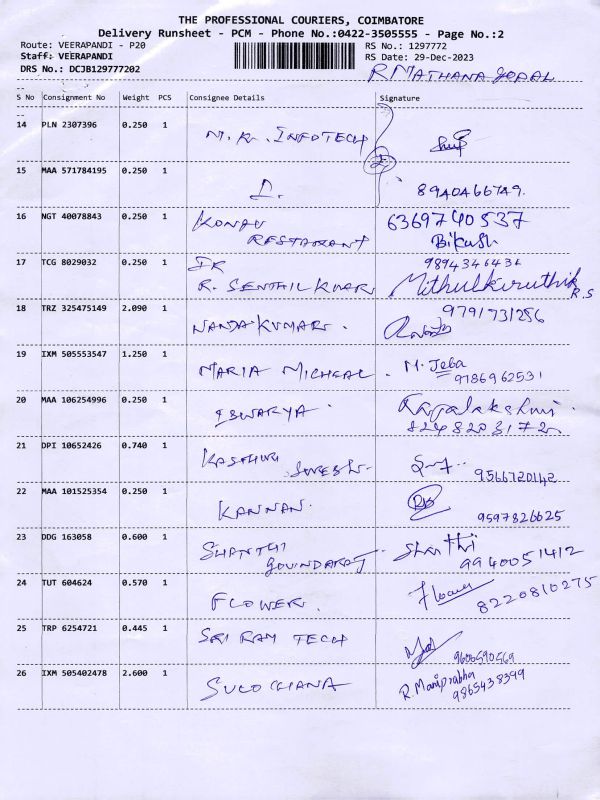 THE PROFESSIONAL COURIERS, COIMBATORE
Delivery Runsheet - PCM - Phone No.:0422-3505555 - Page No.:2
Route: VEERAPANDI - P20 RS No.: 1297772
Staff: VEERAPANDI RS Date: 29-Dec-2023
DRS No.: DCJB129777202 R MATHANA GOPAL
S No Consignment No Weight PCS Consignee Details Signature
14 PLN 2307396 0.250 1
M.K. INFOTECH
15 MAA 571784195 0.250 1
8940466749.
16 NGT 40078843 0.250 1 KONAV 6369740537
RESTAURANT Bikash
17 TCG 8029032 0.250 1 9894346436
R. SENTHIL KUMAR Mithulkiruthik
R.S
18 TRZ 325475149 2.090 1 9791731286
NANDAKUMAR.
19 IXM 505553547 1.250 1 M. Jeba
MARIA MICHEAL. 9786962531
20 MAA 106254996 0.250 1 Rajalakshmi.
ISWARYA 8248203172
21 DPI 10652426 0.740 1 KASTHURI
SURESH. 9566720142
22 MAA 101525354 0.250 1
KANNAN. 9597826625
23 DDG 163058 0.600 1 SHANTHI Shanthi
GOVINDARAJ 9940051412
24 TUT 604624 0.570 1 Flower
FLOWER. 8220810275
25 TRP 6254721 0.445 1 SRI RAM TECH
9600590569
26 IXM 505402478 2.600 1 SULOCHANA R. Maniprabha
9865438399